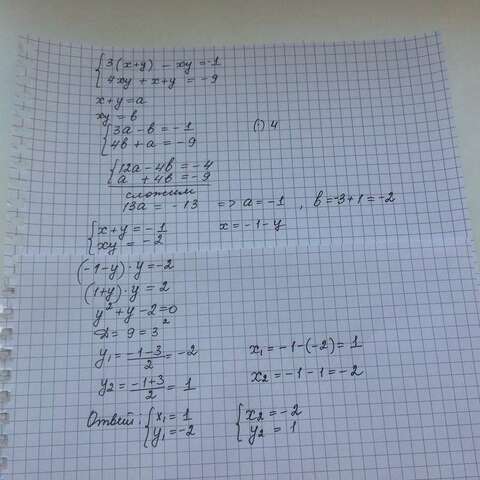 {3(x+y) - xy = -1
{4xy + x+y = -9
x+y=a
xy = b
{3a - b = -1 (·) 4
{4b + a = -9
{12a - 4b = -4
{a + 4b = -9
сложим
13a = -13 => a = -1 , b = -3+1 = -2
{x+y = -1 x = -1-y
{xy = -2
(-1-y)·y = -2
(1+y)·y = 2
y² + y - 2 = 0
D = 9 = 3²
y₁ = (-1-3)/2 = -2 x₁ = -1-(-2) = 1
y₂ = (-1+3)/2 = 1 x₂ = -1-1 = -2
Ответ: {x₁ = 1 {x₂ = -2
{y₁ = -2 {y₂ = 1